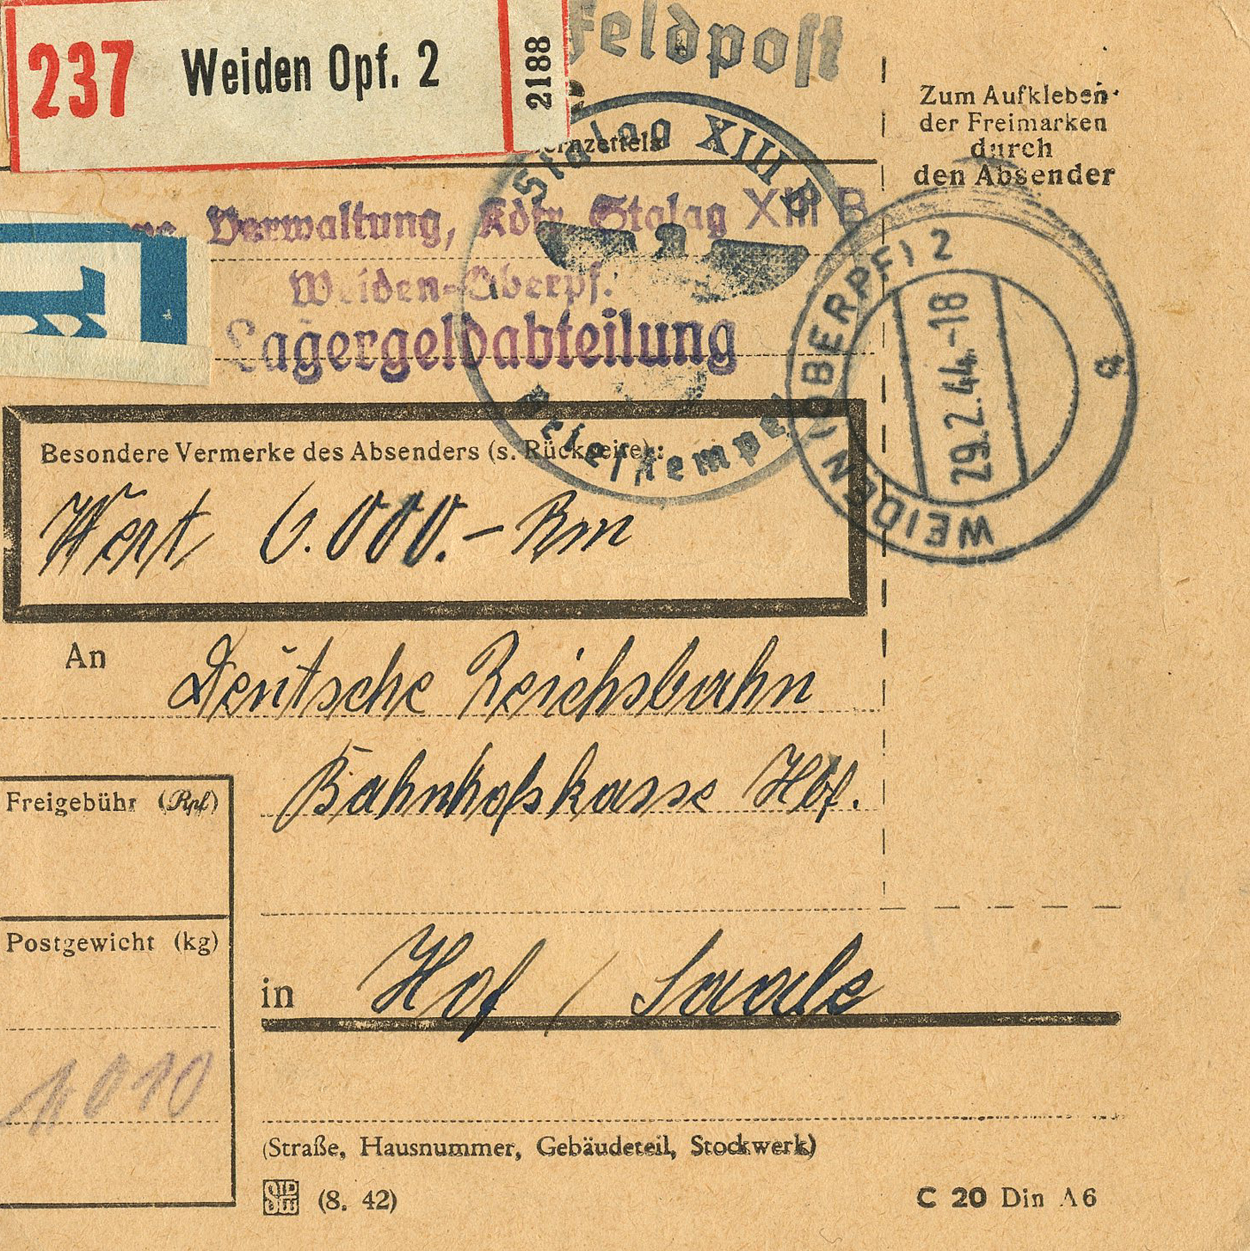 237 Weiden Opf. 2 2188
Feldpost
Zum Aufkleben
der Freimarken
durch
den Absender
Stalag XIII B
Briefstempel
Verwaltung, Kdtr. Stalag XIII B
Weiden-Oberpf.
Lagergeldabteilung
WEIDEN (OBERPF) 2
29.2.44.-18
a
Besondere Vermerke des Absenders (s. Rückseite):
Wert 6.000.- Rm
An Deutsche Reichsbahn
Bahnhofskasse Hof.
Freigebühr (Rpf)
Postgewicht (kg)
in Hof / Saale
(Straße, Hausnummer, Gebäudeteil, Stockwerk)
(8. 42)
C 20 Din A6